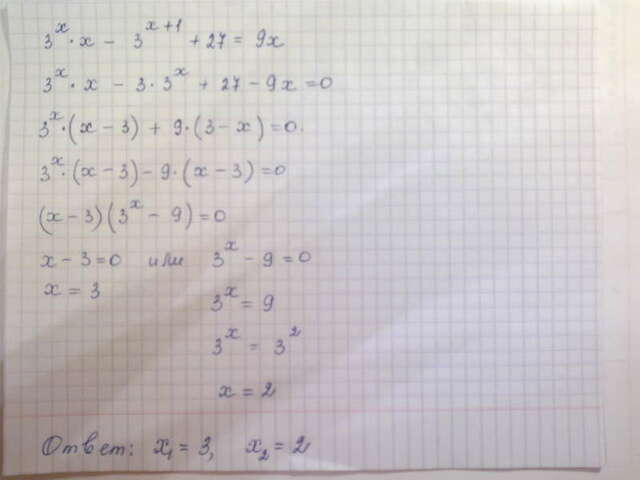 3ˣ·x − 3ˣ⁺¹ + 27 = 9x
3ˣ·x − 3·3ˣ + 27 − 9x = 0
3ˣ·(x − 3) + 9·(3 − x) = 0.
3ˣ·(x − 3) − 9·(x − 3) = 0
(x − 3)(3ˣ − 9) = 0
x − 3 = 0 или 3ˣ − 9 = 0
x = 3
3ˣ = 9
3ˣ = 3²
x = 2
Ответ: x₁ = 3, x₂ = 2